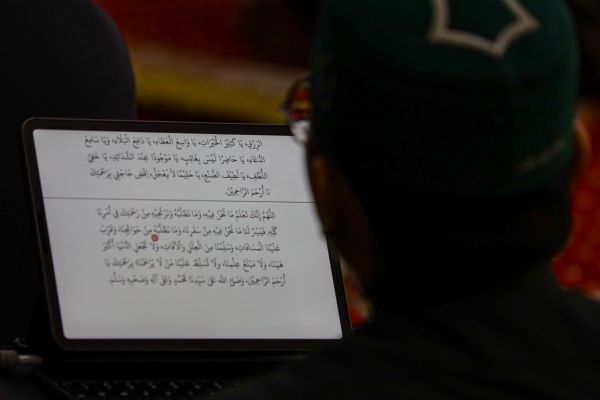 الرِّزْقِ، يَا كَثِيْرَ الْخَيْرَاتِ، يَا وَاسِعَ الْعَطَاءِ، يَا دَافِعَ الْبَلَاءِ، وَيَا سَامِعَ
الدُّعَاءِ، يَا حَاضِرًا لَيْسَ بِغَائِبٍ، يَا مَوْجُودًا عِنْدَ الشَّدَائِدِ، يَا خَفِيَّ
اللُّطْفِ، يَا لَطِيْفَ الصُّنْعِ، يَا حَلِيْمًا لَا يَعْجَلُ، اِقْضِ حَاجَتِي بِرَحْمَتِكَ
يَا أَرْحَمَ الرَّاحِمِيْنَ.
اللَّهُمَّ إِنَّكَ تَعْلَمُ مَا نَحْنُ فِيْهِ، وَمَا نَطْلُبُهُ وَنَرْتَجِيْهِ مِنْ رَحْمَتِكَ فِي أَمْرِنَا
كُلِّهِ، فَيَسِّرْ لَنَا مَا نَحْنُ فِيْهِ مِنْ سَفَرِنَا، وَمَا نَطْلُبُهُ مِنْ حَوَائِجِنَا، وَقَرِّبْ
عَلَيْنَا الْمَسَافَاتِ، وَسَلِّمْنَا مِنَ الْعِلَلِ وَالْآفَاتِ، وَلَا تَجْعَلِ الدُّنْيَا أَكْبَرَ
هَمِّنَا، وَلَا مَبْلَغَ عِلْمِنَا، وَلَا تُسَلِّطْ عَلَيْنَا مَنْ لَا يَرْحَمُنَا، بِرَحْمَتِكَ يَا
أَرْحَمَ الرَّاحِمِيْنَ، وَصَلَّى اللهُ عَلَى سَيِّدِنَا مُحَمَّدٍ وَعَلَى آلِهِ وَصَحْبِهِ وَسَلَّمَ.